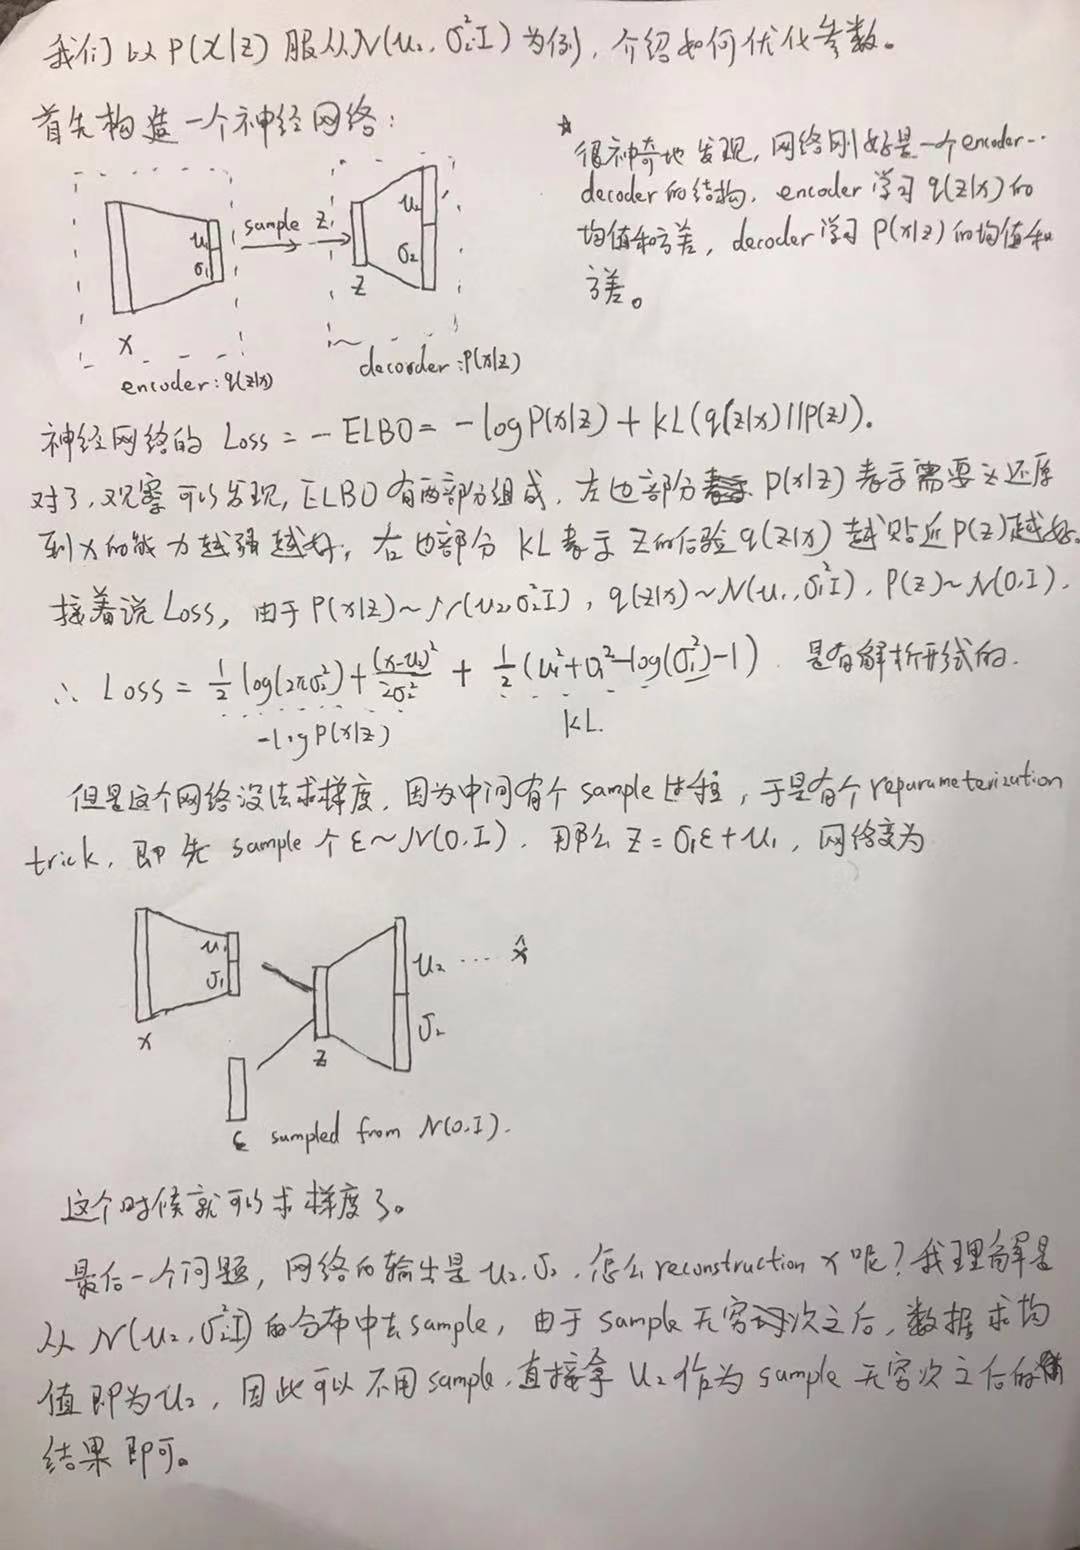 我们以 P(x|z) 服从 N(u₂, σ₂²I) 为例, 介绍如何优化参数。
首先构造一个神经网络:
☆ 很神奇地发现, 网络刚好是一个encoder--
decoder的结构, encoder学习 q(z|x) 的
均值和方差, decoder学习 P(x|z) 的均值和
方差。
u₁
σ₁
x
sample
z₁
z
u₂
σ₂
encoder: q(z|x)
decorder: P(x|z)
神经网络的 Loss = - ELBO = - log P(x|z) + KL(q(z|x)||P(z)).
对了, 观察可以发现, ELBO有两部分组成, 左边部分 P(x|z) 表示需要z还原
到x的能力越强越好, 右边部分 KL表示 z的后验 q(z|x) 越贴近P(z)越好。
接着说Loss, 由于 P(x|z)~N(u₂,σ₂²I), q(z|x)~N(u₁,σ₁²I), P(z)~N(0,I).
∴ Loss = ½ log(2πσ₂²) + (x-u₂)²/2σ₂² + ½ (u₁²+σ₁²-log(σ₁²)-1) 是有解析形式的.
-log P(x|z)
KL.
但是这个网络没法求梯度, 因为中间有个 sample 过程, 于是有个 reparameterization
trick, 即先 sample 个 ε~N(0,I), 那么 z = σ₁ε+u₁, 网络变为
u₁
σ₁
x
z
u₂ .... x̂
σ₂
ε sampled from N(0,I).
这个时候就可以求梯度了。
最后一个问题, 网络的输出是 u₂,σ₂, 怎么reconstruction x呢? 我理解是
从 N(u₂,σ₂²I) 的分布中去sample, 由于 sample 无穷次之后, 数据求均
值即为u₂, 因此可以不用sample, 直接拿 u₂作为sample 无穷次之后的
结果即可。